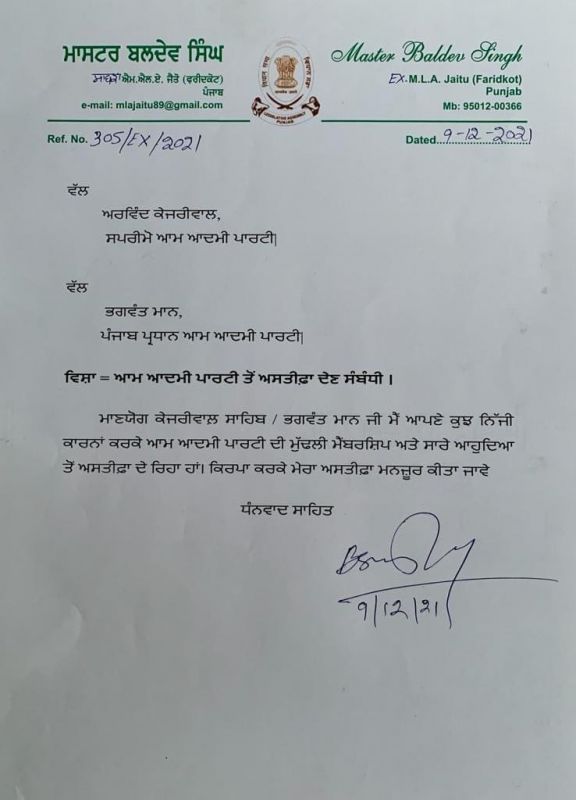 ਮਾਸਟਰ ਬਲਦੇਵ ਸਿੰਘ
ਸਾਬਕਾ ਐਮ.ਐਲ.ਏ. ਜੈਤੋ (ਫਰੀਦਕੋਟ)
ਪੰਜਾਬ
e-mail: mlajaitu89@gmail.com
Master Baldev Singh
EX. M.L.A. Jaitu (Faridkot)
Punjab
Mb: 95012-00366
LEGISLATIVE ASSEMBLY
PUNJAB
Ref. No. 305/EX/2021
Dated 9-12-2021
ਵੱਲ
ਅਰਵਿੰਦ ਕੇਜਰੀਵਾਲ,
ਸਪਰੀਮੋ ਆਮ ਆਦਮੀ ਪਾਰਟੀ|
ਵੱਲ
ਭਗਵੰਤ ਮਾਨ,
ਪੰਜਾਬ ਪ੍ਰਧਾਨ ਆਮ ਆਦਮੀ ਪਾਰਟੀ|
ਵਿਸ਼ਾ = ਆਮ ਆਦਮੀ ਪਾਰਟੀ ਤੋਂ ਅਸਤੀਫ਼ਾ ਦੇਣ ਸੰਬੰਧੀ ।
ਮਾਣਯੋਗ ਕੇਜਰੀਵਾਲ਼ ਸਾਹਿਬ / ਭਗਵੰਤ ਮਾਨ ਜੀ ਮੈਂ ਆਪਣੇ ਕੁਝ ਨਿੱਜੀ
ਕਾਰਨਾਂ ਕਰਕੇ ਆਮ ਆਦਮੀ ਪਾਰਟੀ ਦੀ ਮੁੱਢਲੀ ਮੈਂਬਰਸ਼ਿਪ ਅਤੇ ਸਾਰੇ ਆਹੁਦਿਆ
ਤੋਂ ਅਸਤੀਫ਼ਾ ਦੇ ਰਿਹਾ ਹਾਂ। ਕਿਰਪਾ ਕਰਕੇ ਮੇਰਾ ਅਸਤੀਫ਼ਾ ਮਨਜ਼ੂਰ ਕੀਤਾ ਜਾਵੇ
ਧੰਨਵਾਦ ਸਾਹਿਤ
9/12/21